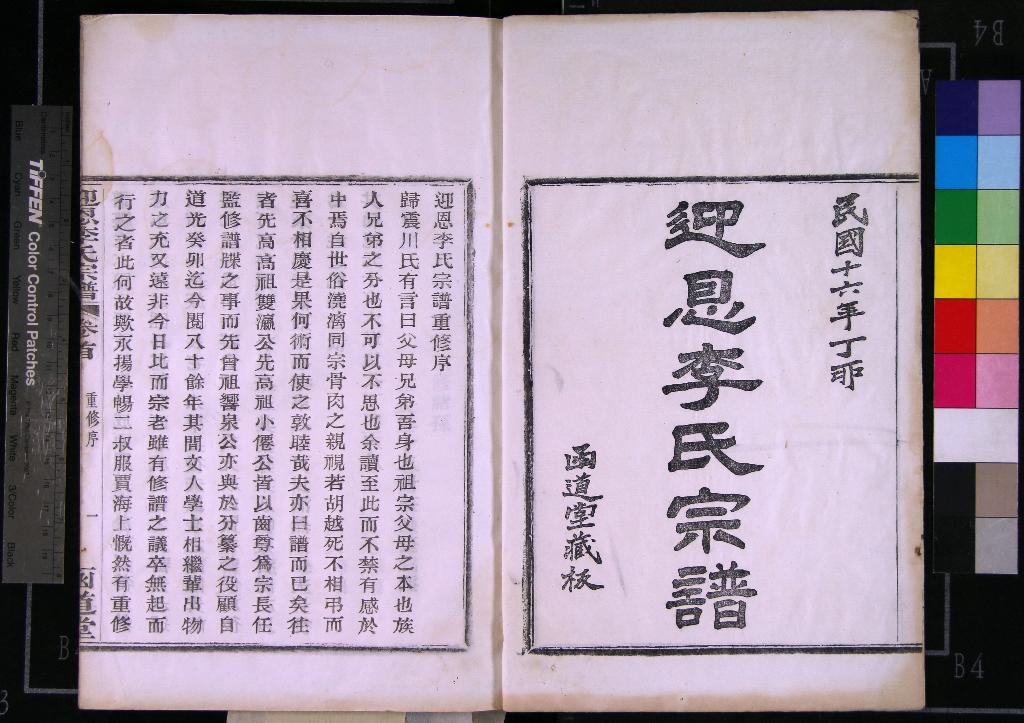 民國十六年丁卯
迎恩李氏宗譜
函道堂藏板
迎恩李氏宗譜重修序
歸震川氏有言曰父母兄弟吾身也祖宗父母之本也族
人兄弟之分也不可以不思也余讀至此而不禁有感於
中焉自世俗澆漓同宗骨肉之親視若胡越死不相弔而
喜不相慶是果何術而使之敦睦哉夫亦曰譜而已矣往
者先高高祖雙瀛公先高祖小僊公皆以齒尊爲宗長任
監修譜牒之事而先曾祖響泉公亦與於分纂之役顧自
道光癸卯迄今閱八十餘年其間文人學士相繼輩出物
力之充又遠非今日比而宗老雖有修譜之議卒無起而
行之者此何故歟永揚學暢二叔服賈海上慨然有重修
迎恩李氏宗譜 卷首 重修序 一 函道堂
TIFFEN Color Control Patches
Blue Cyan Green Yellow Red Magenta White 3/Color Black
B4
B4
A
B
3